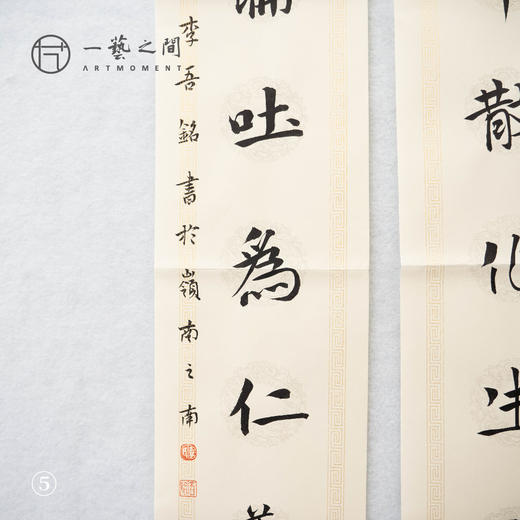 一藝之間
ARTMOMENT
散化生
吐為仁
李吾銘書於嶺南之南
5